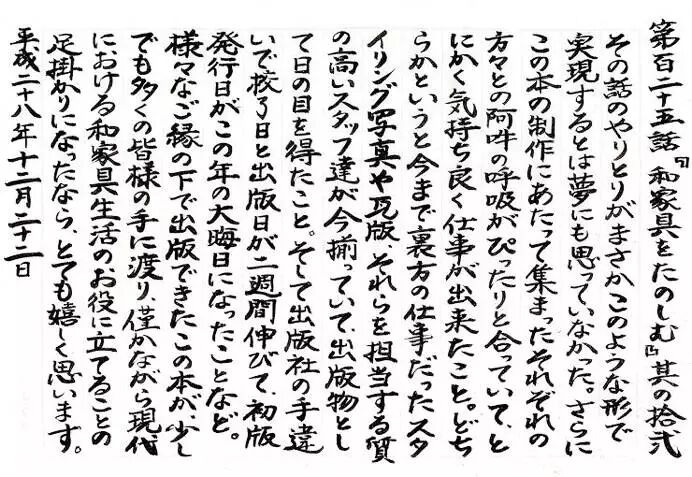 第百二十五話『和家具をたのしむ』其の拾弐
その話のやりとりがまさかこのような形で
実現するとは夢にも思っていなかった。さらに
この本の制作にあたって集まったそれぞれの
方々との阿吽の呼吸がぴったりと合っていて、と
にかく気持ち良く仕事が出来たこと。どち
らかというと今まで裏方の仕事だったスタ
イリング写真や瓦版、それらを担当する質
の高いスタッフ達が今揃っていて、出版物とし
て日の目を得たこと。そして出版社の手違
いで校了日と出版日が二週間伸びて、初版
発行日がこの年の大晦日になったことなど。
様々なご縁の下で出版できたこの本が、少し
でも多くの皆様の手に渡り、僅かながら現代
における和家具生活のお役に立てることの
足掛かりになったなら、とても嬉しく思います。
平成二十八年十二月二十二日